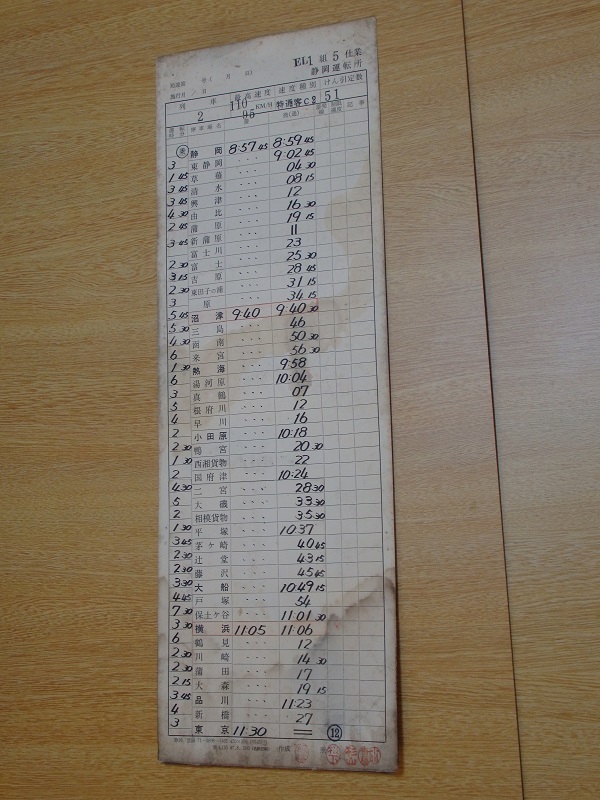 EL1 組 5 仕業
年( 月 日)
静岡運転所
施行月 / 日
列車 最高速度 速度種別 けん引定数
2 110 95 KM/H 特通客C2 51
停車場名 着 発(通) 記事
静岡 8:57 45 8:59 45
3 東静岡 ・・・ 9:02 45
1 45 草薙 ・・・ 04 30
3 45 清水 ・・・ 08 15
3 45 興津 ・・・ 12
4 30 由比 ・・・ 16 30
2 45 蒲原 ・・・ 19 15
新蒲原 ・・・ 11
3 45 富士川 ・・・ 23
2 30 富士 ・・・ 25 30
3 15 吉原 ・・・ 28 45
2 30 東田子の浦 ・・・ 31 15
3 原 ・・・ 34 15
5 45 沼津 9:40 9:40 30
5 30 三島 ・・・ 46
4 30 函南 ・・・ 50 30
6 来宮 ・・・ 56 30
1 30 熱海 ・・・ 9:58
6 湯河原 ・・・ 10:04
3 真鶴 ・・・ 07
5 根府川 ・・・ 12
4 早川 ・・・ 16
2 小田原 ・・・ 10:18
2 30 鴨宮 ・・・ 20 30
1 30 西湘貨物 ・・・ 22
2 国府津 ・・・ 10:24
4 30 二宮 ・・・ 28 30
5 大磯 ・・・ 33 30
2 相模貨物 ・・・ 35 30
1 30 平塚 ・・・ 10:37
3 45 茅ヶ崎 ・・・ 40 45
2 30 辻堂 ・・・ 43 15
2 30 藤沢 ・・・ 45 45
3 30 大船 ・・・ 10:49 15
4 45 戸塚 ・・・ 54
7 30 保土ヶ谷 ・・・ 11:01 30
3 30 横浜 11:05 11:06
6 鶴見 ・・・ 12
2 30 川崎 ・・・ 14 30
2 30 蒲田 ・・・ 17
2 15 大森 ・・・ 19 15
3 45 品川 ・・・ 11:23
4 新橋 ・・・ 27
3 東京 11:30 = ⑫
作成